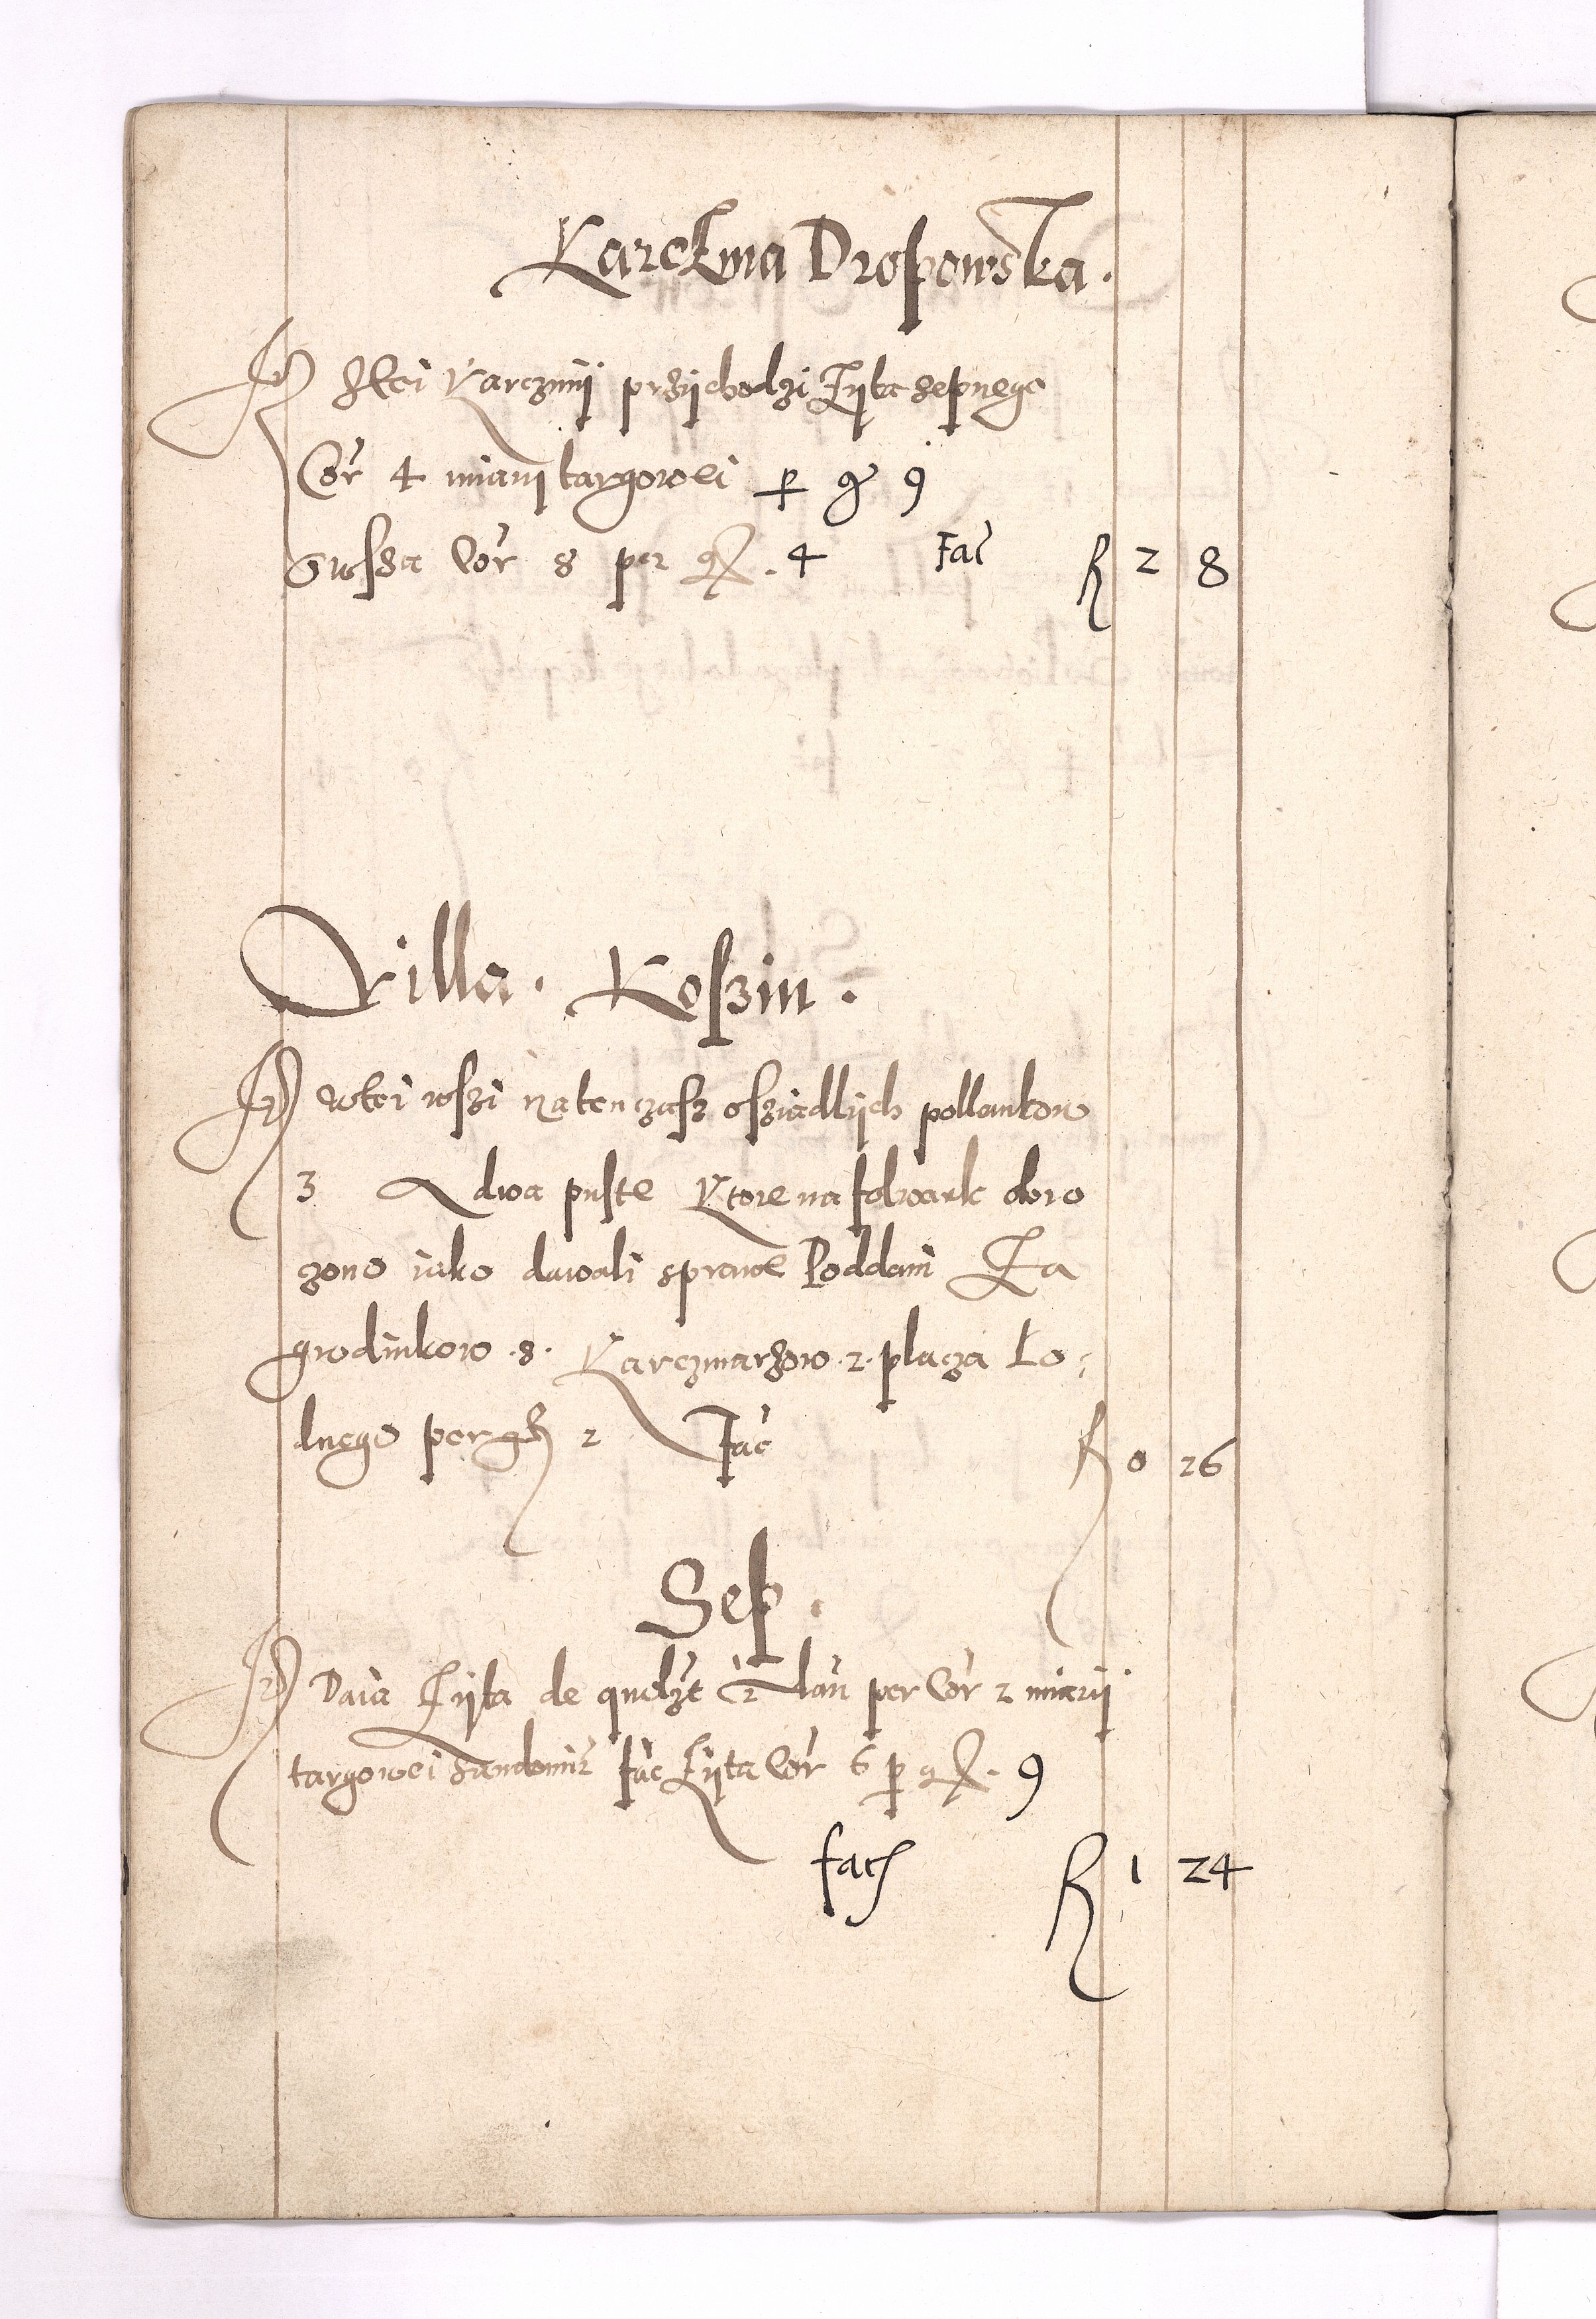 Karczma Dropowska.
It Stei Karczmij przijchodzi Zijta sepnego
Cor 4 miarij targowei per gr 9
Owssa Cor 8 per gr. 4 Fac R 2 8
Villa. Koszin.
It wtei wszi natenczasz osziadlijch pollankow
3 A dwa puste Ktore na folwark obro
czono iako dawali sprawe Poddani Za
grodnikow .8. Karczmarzow .2. placza Ko-
lnego per gr 2 Fac R 0 26
Sep.
It Daia Zijta de quolzt 1/2 Lan per Cor 2 miarij
targowei Sandomir fac Zijta Cor 6 per gr. 9
fac R 1 24